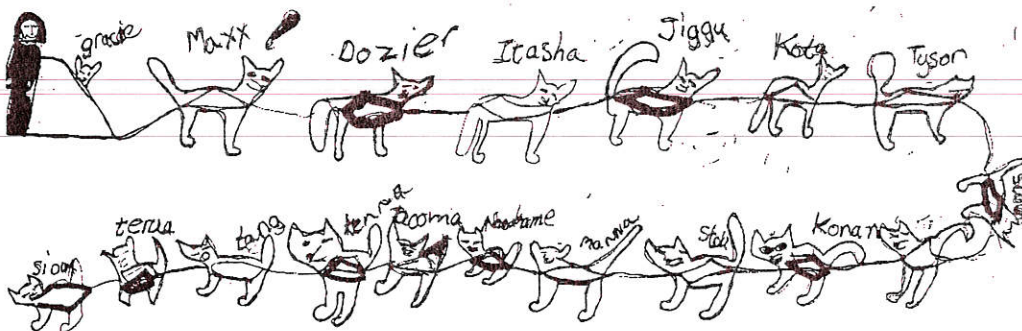 gracie Maxx Dozier Itasha Jiggy Kota Tyson
sioux terva tang tacoma Nochame manna Konan